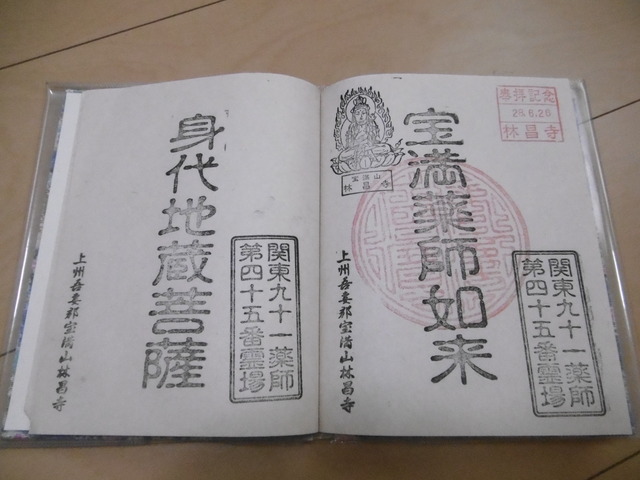 参拝記念
28.6.26
林昌寺
宝満薬師如来
宝満山
林昌寺
関東九十一薬師
第四十五番霊場
上州吾妻郡宝満山林昌寺
身代地蔵菩薩
関東九十一薬師
第四十五番霊場
上州吾妻郡宝満山林昌寺